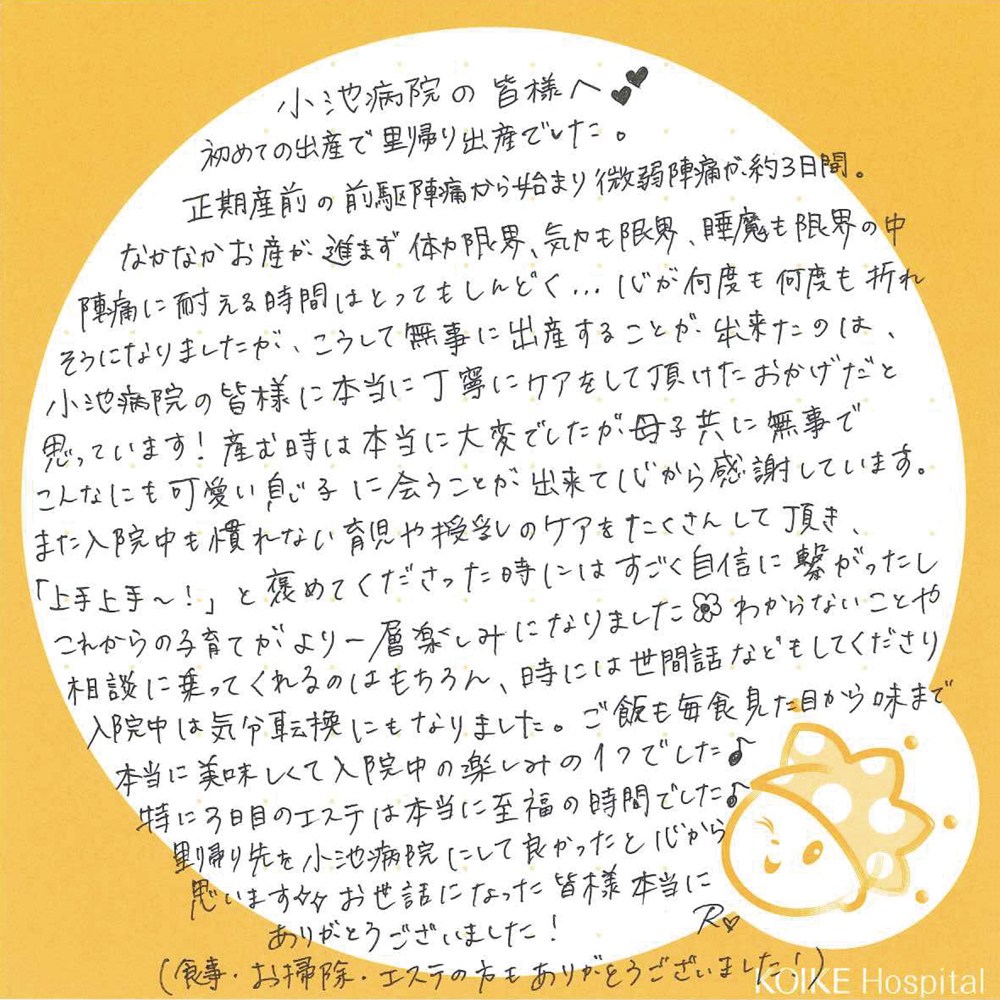 小池病院の皆様へ💕
初めての出産で里帰り出産でした。
正期産前の前駆陣痛から始まり微弱陣痛が約3日間。
なかなかお産が進まず体力限界、気力も限界、睡魔も限界の中
陣痛に耐える時間はとってもしんどく…心が何度も何度も折れ
そうになりましたが、こうして無事に出産することが出来たのは、
小池病院の皆様に本当に丁寧にケアをして頂けたおかげだと
思っています！産む時は本当に大変でしたが母子共に無事で
こんなにも可愛い息子に会うことが出来て心から感謝しています。
また入院中も慣れない育児や授乳のケアをたくさんして頂き、
「上手上手〜！」と褒めてくださった時にはすごく自信に繋がったし
これからの子育てがより一層楽しみになりました✿わからないことや
相談に乗ってくれるのはもちろん、時には世間話などもしてくださり
入院中は気分転換にもなりました。ご飯も毎食見た目から味まで
本当に美味しくて入院中の楽しみの1つでした♪
特に3日目のエステは本当に至福の時間でした♪
里帰り先を小池病院にして良かったと心から
思います✨お世話になった皆様本当に
ありがとうございました！
R♡
(食事・お掃除・エステの方もありがとうございました！)
KOIKE Hospital